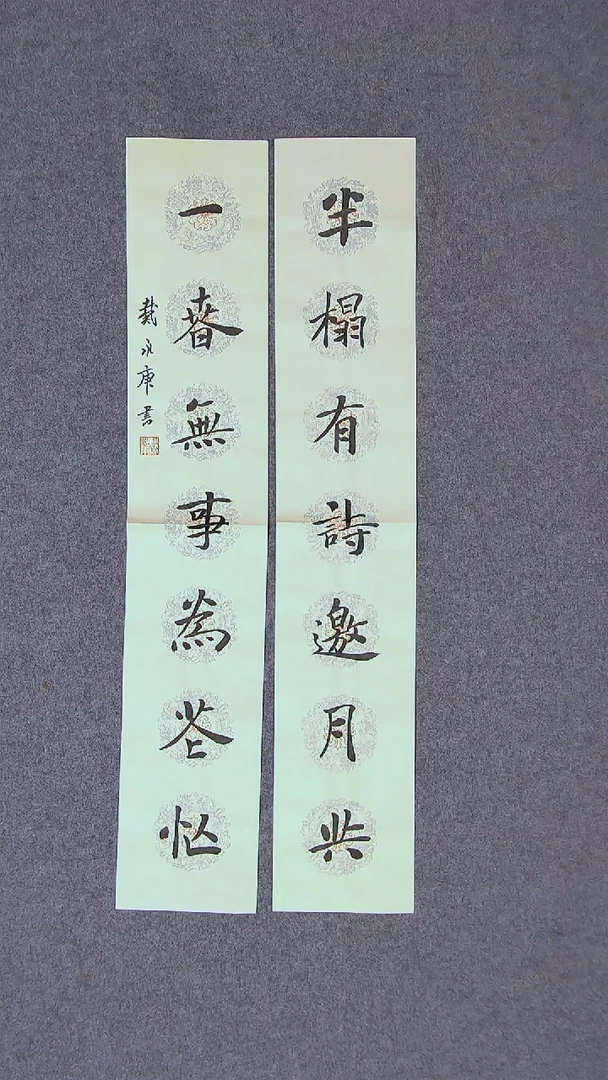 半榻有詩邀月共
一春無事為花忙
戴永康書